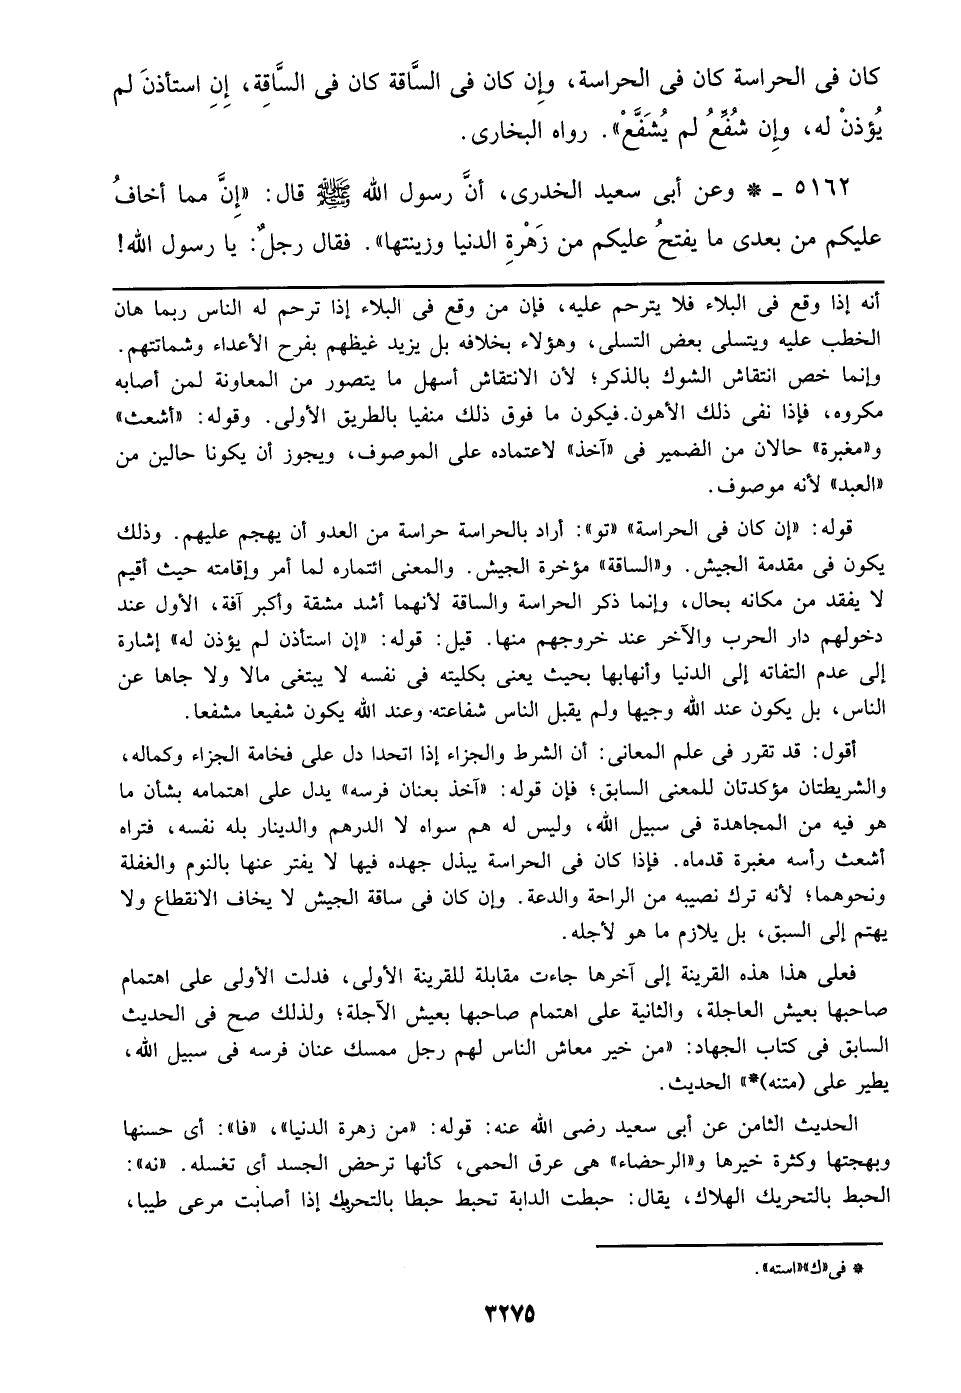 كان فى الحراسة كان فى الحراسة، وإِن كان فى السَّاقة كان فى السَّاقِة، إِنِ استأذنَ لم
يُؤذنْ له، وإِن شُفِّعُ لم يُشَفَّعْ». رواه البخارى.
٥١٦٢ ـ * وعن أبى سعيد الخدرى، أنَّ رسول الله ﷺ قال: «إِنَّ مما أخافُ
عليكم من بعدى ما يفتحُ عليكم من زَهْرةِ الدنيا وزينتها». فقال رجلٌ: يا رسول الله!
أنه إذا وقع فى البلاء فلا يترحم عليه، فإن من وقع فى البلاء إذا ترحم له الناس ربما هان
الخطب عليه ويتسلى بعض التسلى، وهؤلاء بخلافه بل يزيد غيظهم بفرح الأعداء وشماتتهم.
وإنما خص انتقاش الشوك بالذكر؛ لأن الانتقاش أسهل ما يتصور من المعاونة لمن أصابه
مكروه، فإذا نفى ذلك الأهون.فيكون ما فوق ذلك منفيا بالطريق الأولى. وقوله: «أشعث»
و«مغبرة» حالان من الضمير فى «آخذ» لاعتماده على الموصوف، ويجوز أن يكونا حالين من
«العبد» لأنه موصوف.
قوله: «إن كان فى الحراسة» «تو»: أراد بالحراسة حراسة من العدو أن يهجم عليهم. وذلك
يكون فى مقدمة الجيش. و«الساقة» مؤخرة الجيش. والمعنى ائتماره لما أمر وإقامته حيث أقيم
لا يفقد من مكانه بحال، وإنما ذكر الحراسة والساقة لأنهما أشد مشقة وأكبر آفة، الأول عند
دخولهم دار الحرب والآخر عند خروجهم منها. قيل: قوله: «إن استأذن لم يؤذن له» إشارة
إلى عدم التفاته إلى الدنيا وأنهابها بحيث يعنى بكليته فى نفسه لا يبتغى مالا ولا جاها عن
الناس، بل يكون عند الله وجيها ولم يقبل الناس شفاعته. وعند الله يكون شفيعا مشفعا.
أقول: قد تقرر فى علم المعانى: أن الشرط والجزاء إذا اتحدا دل على فخامة الجزاء وكماله،
والشريطتان مؤكدتان للمعنى السابق؛ فإن قوله: «آخذ بعنان فرسه» يدل على اهتمامه بشأن ما
هو فيه من المجاهدة فى سبيل الله، وليس له هم سواه لا الدرهم والدينار بله نفسه، فتراه
أشعث رأسه مغبرة قدماه. فإذا كان فى الحراسة يبذل جهده فيها لا يفتر عنها بالنوم والغفلة
ونحوهما؛ لأنه ترك نصيبه من الراحة والدعة. وإن كان فى ساقة الجيش لا يخاف الانقطاع ولا
يهتم إلى السبق، بل يلازم ما هو لأجله.
فعلى هذا هذه القرينة إلى آخرها جاءت مقابلة للقرينة الأولى، فدلت الأولى على اهتمام
صاحبها بعيش العاجلة، والثانية على اهتمام صاحبها بعيش الآجلة؛ ولذلك صح فى الحديث
السابق فى كتاب الجهاد: «من خير معاش الناس لهم رجل ممسك عنان فرسه فى سبيل الله،
يطير على (متنه)*» الحديث.
الحديث الثامن عن أبى سعيد رضى الله عنه: قوله: «من زهرة الدنيا»، «فا»: أى حسنها
وبهجتها وكثرة خيرها و«الرحضاء» هى عرق الحمى، كأنها ترحض الجسد أى تغسله. «نه»:
الحبط بالتحريك الهلاك، يقال: حبطت الدابة تحبط حبطا بالتحريك إذا أصابت مرعى طيبا،
* فى«ك»«استه».
٣٢٧٥